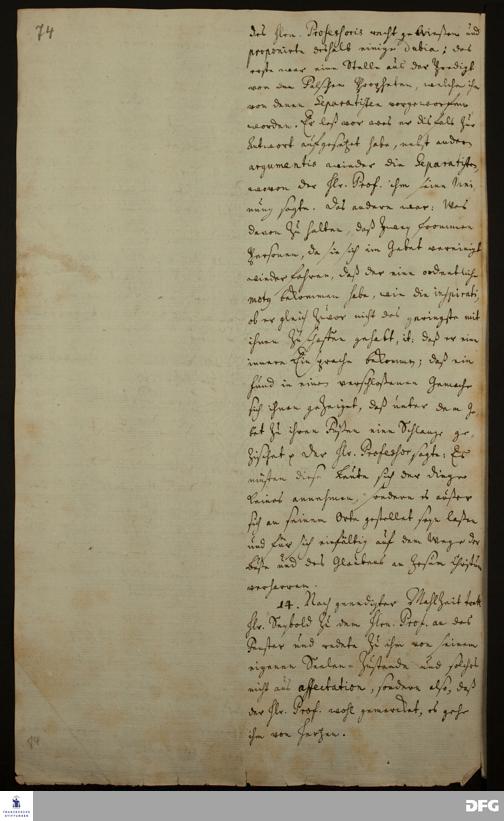 74
des Hrn. Professoris recht gewiesen und
proponirte deshalb einige dubia; das
erste war eine Stelle aus der Predigt
von den falschen Propheten, welche ihm
von denen Separatisten vorgeworffen
worden. Er laß vor was er disfals zur
Antwort aufgesetzet habe, nebst andern
argumentis wieder die Separatisten,
wovon der Hr. Prof. ihm seine Mei
nung sagte. Das andere war: Was
davon zu halten, daß zwey fromme
Personen, da sie sich im Gebet vereiniget
wiederfahren, daß der eine ordentliche
motus bekommen habe, wie die inspirati,
ob er gleich zuvor nicht das geringste mit
ihnen zu schaffen gehabt, it. daß er eine
innere Einsprache bekommen; daß ein
Hund in einem verschloßenen Gemache
sich ihnen gezeiget, daß unter dem Ge
bet zu ihren Füßen eine Schlange ge
zischet p Der Hr. Professor sagte: Es
müsten diese Leute sich der Dinge
keines annehmen, sondern es
sich an seinem Orte gestellet seyn laßen
und für sich einfältig auf dem Wege der
Buße und des Glaubens an Jesum Christum
verharren.
14. Nach geendigter Mahlzeit trat
Hr. Seybold zu dem Hrn. Prof. an das
Fenster und redete zu ihm von seinem
eigenen Seelen-Zustande und solches
nicht aus affectation, sondern also, daß
der Hr. Prof. wohl gemercket, es gehe
ihm von Hertzen.
FRANCKESCHE
STIFTUNGEN
DFG